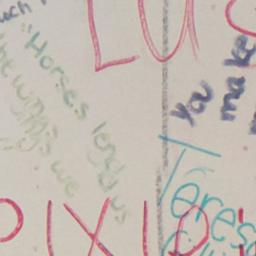 uch
LU
"Horses lend us
the wings we
You
make
Teres
PIXI